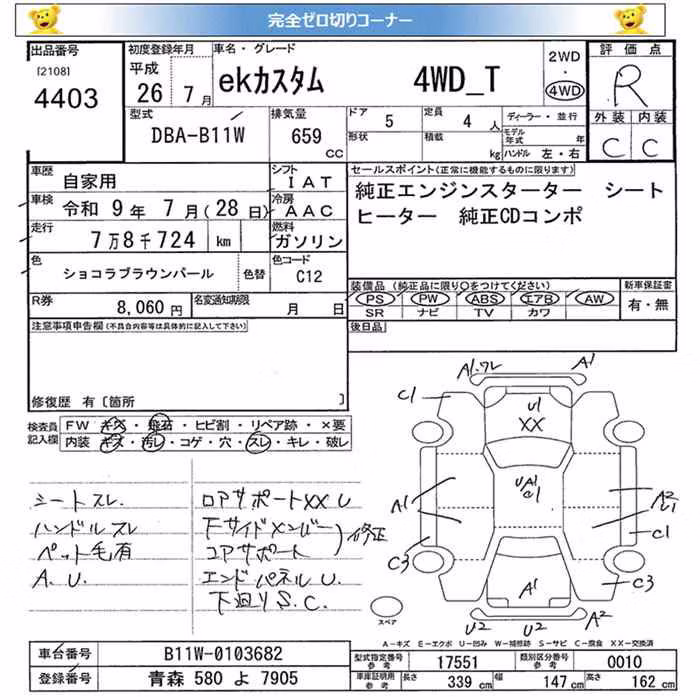 完全ゼロ切りコーナー
出品番号
[2108]
4403
初度登録年月
平成
26 7 月
車名・グレード
ekカスタム 4WD_T
2WD
・
4WD
評価点
R
外装 内装
C C
型式
DBA-B11W
排気量
659
CC
ドア 5
定員 4 人
形状
積載 kg
ディーラー・並行
モデル年式 年
ハンドル 左・右
車歴 自家用
シフト IAT
車検 令和 9 年 7 月(28 日)
冷房 AAC
走行 7万8千724 km
燃料 ガソリン
色 ショコラブラウンパール
色替
色コード C12
R券 8,060 円
名変通知期限 月 日
セールスポイント(正常に機能するものに限ります)
純正エンジンスターター シート
ヒーター 純正CDコンポ
装備品(純正品に限り○をつけてください)
PS PW ABS エアB AW
SR ナビ TV カワ
新車保証書
有・無
後日品
注意事項申告欄(不具合内容等は具体的に記入して下さい)
修復歴 有〔箇所 〕
検査員
記入欄
FW キズ・飛石・ヒビ割・リペア跡・×要
内装 キズ・汚レ・コゲ・穴・スレ・キレ・破レ
シートスレ
ハンドルスレ
ペット毛有
A.U.
ロアサポートXX U
下サイドメンバー
コアサポート
修正
エンドパネルU.
下廻りS.C.
A1.ワレ A1
C1
U1
XX
UA1
C1
A1
A2
U1
C1
C3
C3
A1
U2 U2 A2
スペア
A-キズ E-エクボ U-凹み W-補修跡 S-サビ C-腐食 XX-交換済
車台番号 B11W-0103682
登録番号 青森 580 よ 7905
型式指定番号
参考
17551
類別区分番号
参考
0010
車庫証明用
参考
長さ 339 cm
幅 147 cm
高さ 162 cm